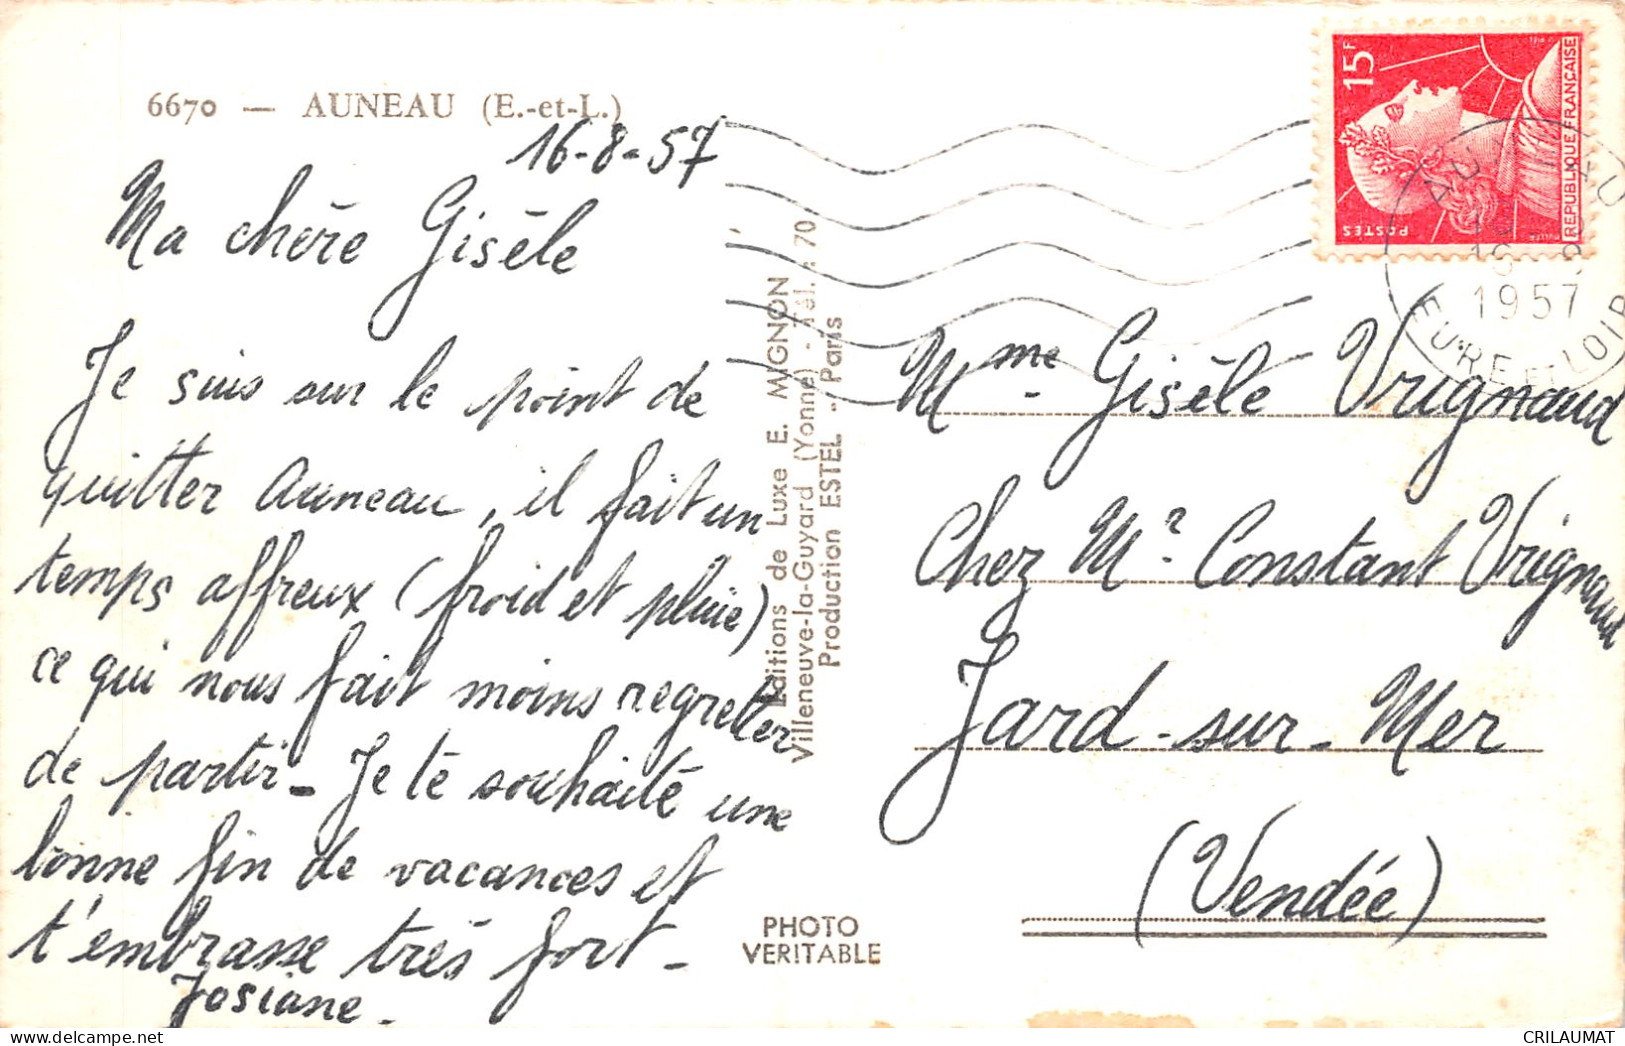 6670 — AUNEAU (E.-et-L.)
16-8-57
Ma chère Gisèle
Je suis sur le point de
quitter Auneau, il fait un
temps affreux (froid et pluie)
ce qui nous fait moins regretter
de partir - Je te souhaite une
bonne fin de vacances et
t'embrasse très fort -
Josiane.
Editions de Luxe E. MIGNON
Villeneuve-la-Guyard (Yonne) - Tél. : 70
Production ESTEL - Paris
PHOTO
VERITABLE
15F
POSTES
REPUBLIQUE FRANÇAISE
MULLER
1957
EURE ET LOIR
Mme Gisèle Vrignaud
Chez Mr Constant Vrignaud
Jard-sur-Mer
(Vendée)
CRILAUMAT